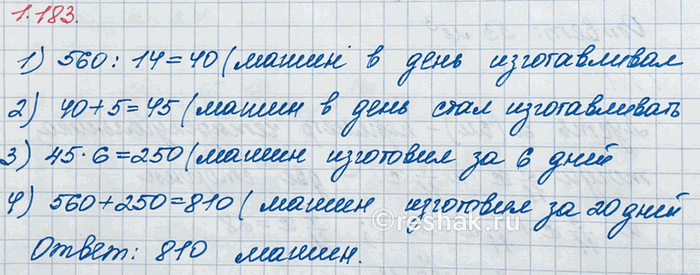 1.183.
1) 560 : 14 = 40 (машин в день изготавливал
2) 40 + 5 = 45 (машин в день стал изготавливать
3) 45 · 6 = 250 (машин изготовил за 6 дней
4) 560 + 250 = 810 (машин изготовил за 20 дней
reshak.ru
Ответ: 810 машин.